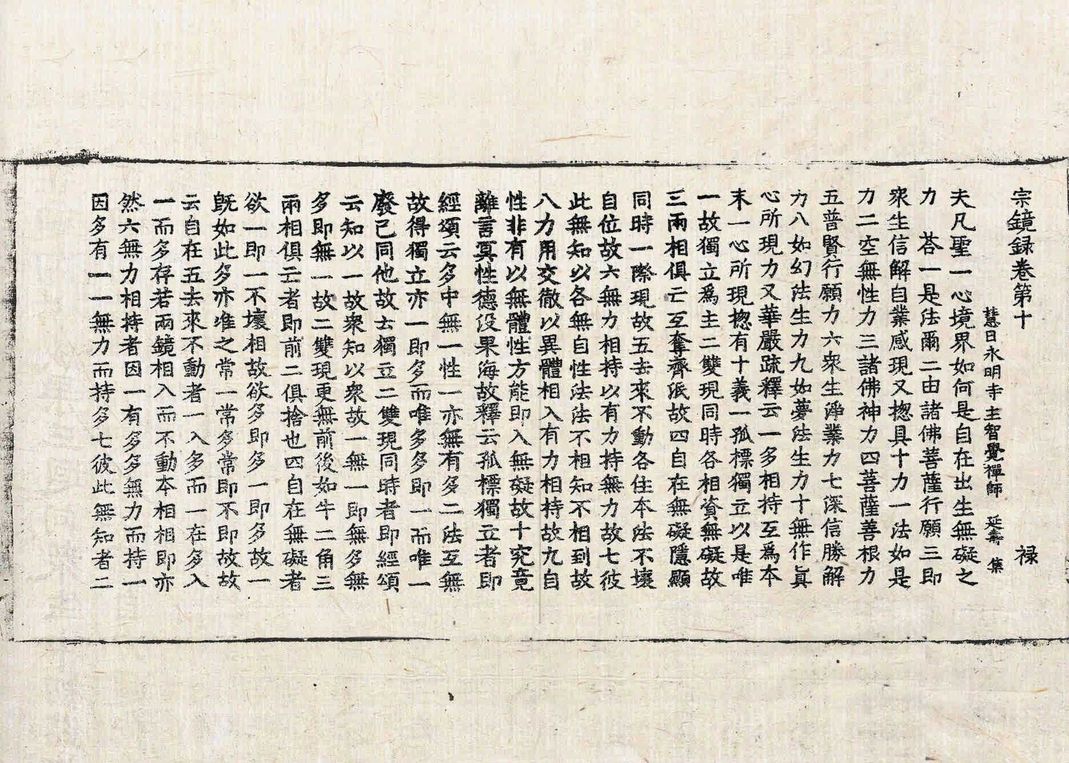 宗鏡録卷第十　　禄
慧日永明寺主智覺禪師　延壽　集
夫凡聖一心境界如何是自在出生無礙之
力　荅一是法爾二由諸佛菩薩行願三即
衆生信解自業感現又揔具十力一法如是
力二空無性力三諸佛神力四菩薩善根力
五普賢行願力六衆生淨業力七深信勝解
力八如幻法生力九如夢法生力十無作真
心所現力又華嚴疏釋云一多相持互爲本
末一心所現揔有十義一孤標獨立以是唯
一故獨立爲主二雙現同時各相資無礙故
三兩相俱亡互奪齊泯故四自在無礙隱顯
同時一際現故五去來不動各住本法不壞
自位故六無力相持以有力持無力故七彼
此無知以各無自性法法不相知不相到故
八力用交徹以異體相入有力相持故九自
性非有以無體性方能即入無礙故十究竟
離言冥性德没果海故釋云孤標獨立者即
經頌云多中無一性一亦無有多二法互無
故得獨立亦一即多而唯多多即一而唯一
廢己同他故云獨立二雙現同時者即經頌
云知以一故衆知以衆故一無一即無多無
多即無一故二雙現更無前後如牛二角三
兩相俱亡者即前二俱捨也四自在無礙者
欲一即一不壞相故欲多即多一即多故一
旣如此多亦唯之常一常多常即不即故故
云自在五去來不動者一入多而一在多入
一而多存若兩鏡相入而不動本相相即亦
然六無力相持者因一有多多無力而持一
因多有一一無力而持多七彼此無知者二